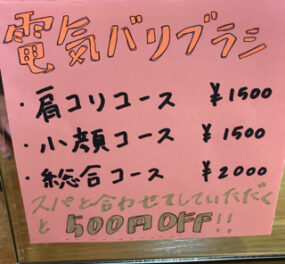 電気バリブラシ
・肩コリコース ￥1500
・小顔コース ￥1500
・総合コース ￥2000
スパと合わせてしていただく
と 500円OFF!!